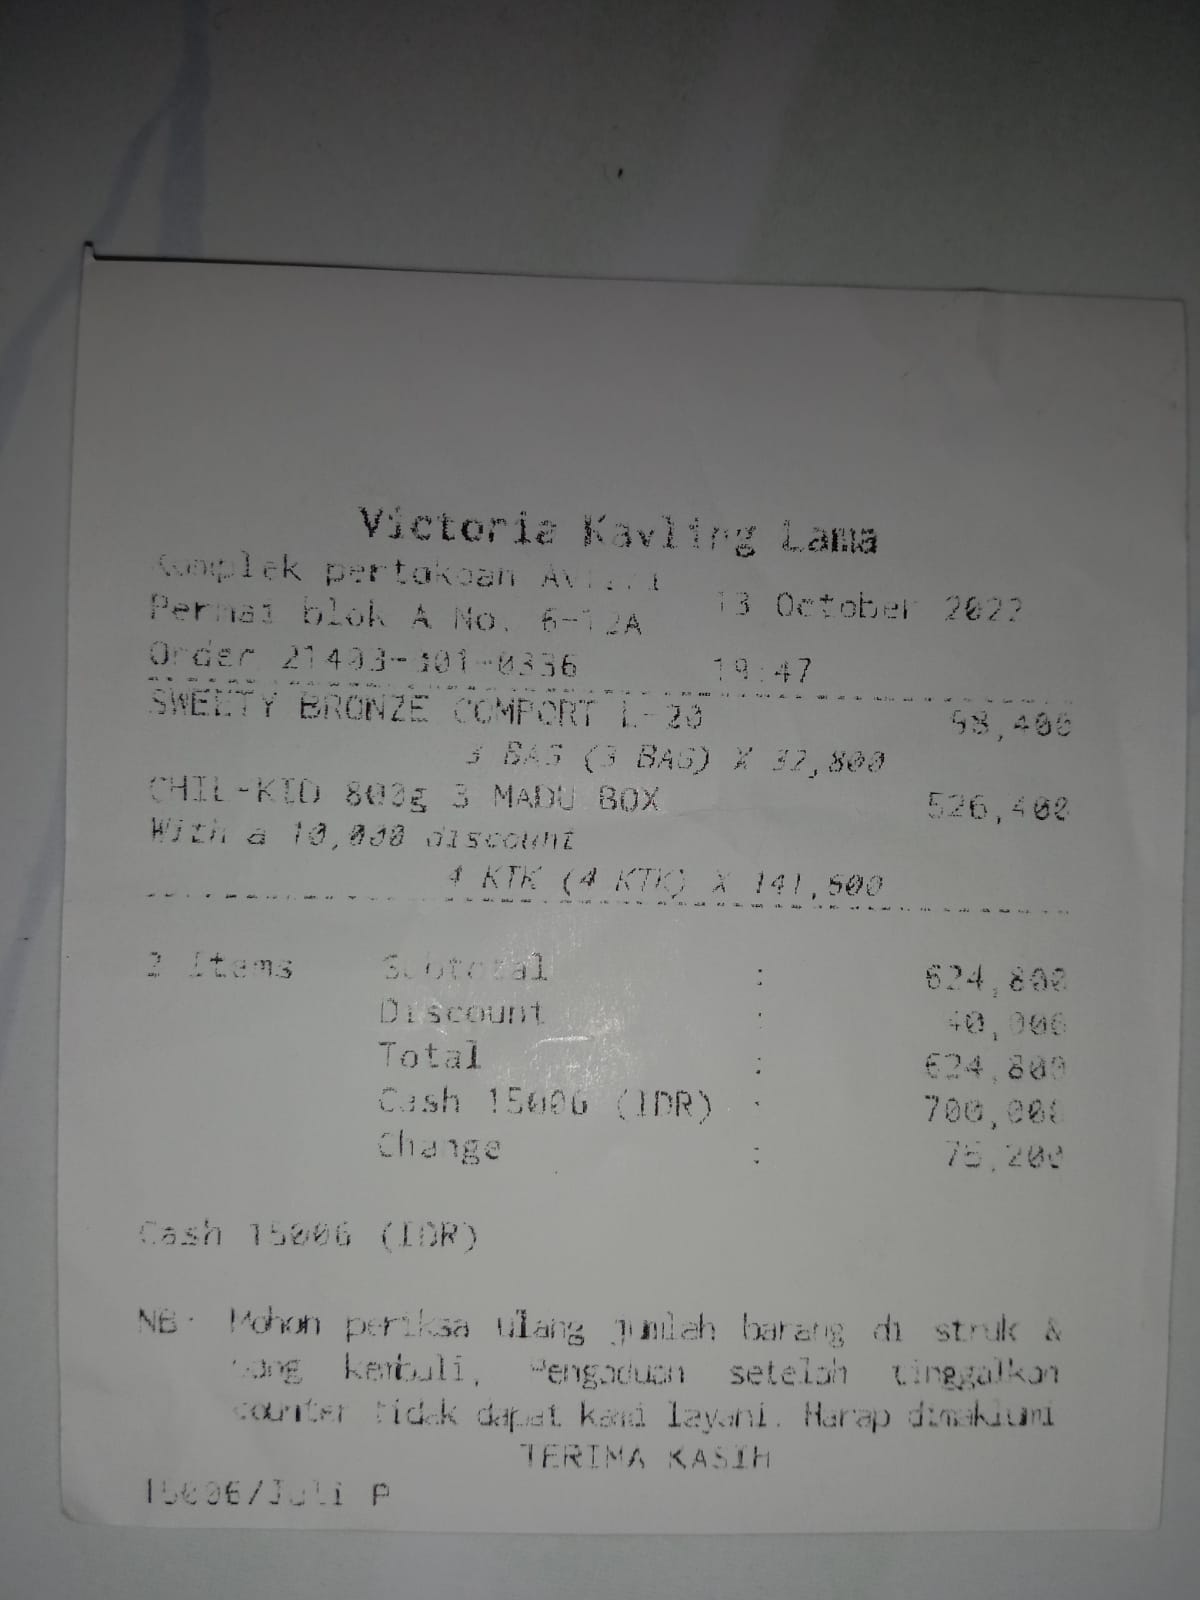 Victoria Kavling Lama
Komplek pertokoan
Permai blok A No. 6-12A 13 October 2022
Order 19:47
SWEETY BRONZE COMPORT L-20 98,400
3 BAG (3 BAG) X 32,800
CHIL-KID 800g 3 MADU BOX 526,400
With a 10,000 discount
4 KTK (4 KTK) X 141,600
2 Items Subtotal : 624,800
Discount : 40,000
Total : 624,800
Cash 15006 (IDR) : 700,000
Change : 75,200
Cash 15006 (IDR)
NB: Mohon periksa ulang jumlah barang di struk &
uang kembali, Pengaduan setelah tinggalkan
counter tidak dapat kami layani. Harap dimaklumi
TERIMA KASIH
15006/Juli P